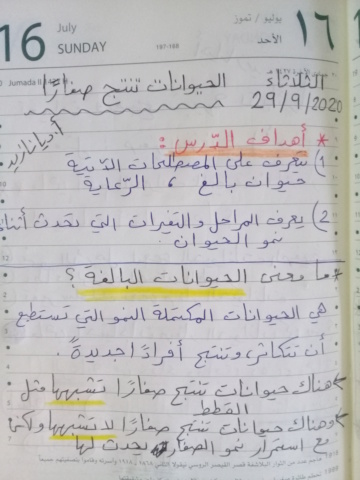 16
July
SUNDAY
197-168
يوليو / تموز
الأحد
١٦
Jumada II
الثلاثاء
29/9/2020
الحيوانات تنتج صغارًا
* أهداف الدّرس :
1) يتعرف على المصطلحات الآتية
حيوان بالغ ، الرّعاية
2) يعرف المراحل والتغيرات التي تحدث أثناء
نمو الحيوان
* ما معنى الحيوانات البالغة ؟
هي الحيوانات المكتملة النمو التي تستطع
أن تتكاثر، وتنتج أفرادًا جديدةً.
هناك حيوانات تنتج صغارًا تشبهها مثل
القطط
وهناك حيوانات تنتج صغارًا لا تشبهها ولكن
مع استمرار نمو الصغار يحدث لها